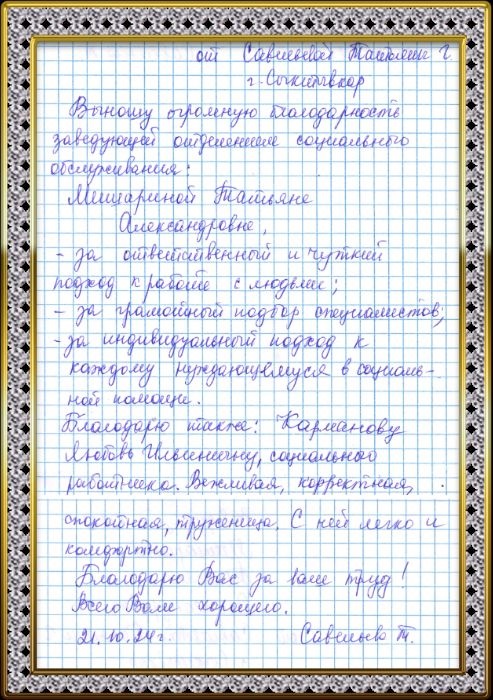 от Савельевой Татьяны Г.
г. Сыктывкар
Выношу огромную благодарность
заведующей отделением социального
обслуживания:
Мишариной Татьяне
Александровне,
- за ответственный и чуткий
подход к работе с людьми;
- за грамотный подбор специалистов;
- за индивидуальный подход к
каждому нуждающемуся в социаль-
ной помощи.
Благодарю также: Карманову
Любовь Ильиничну, социального
работника. Вежливая, корректная,
спокойная, труженица. С ней легко и
комфортно.
Благодарю Вас за ваш труд!
Всего Вам хорошего.
21.10.24г. Савельева Т.